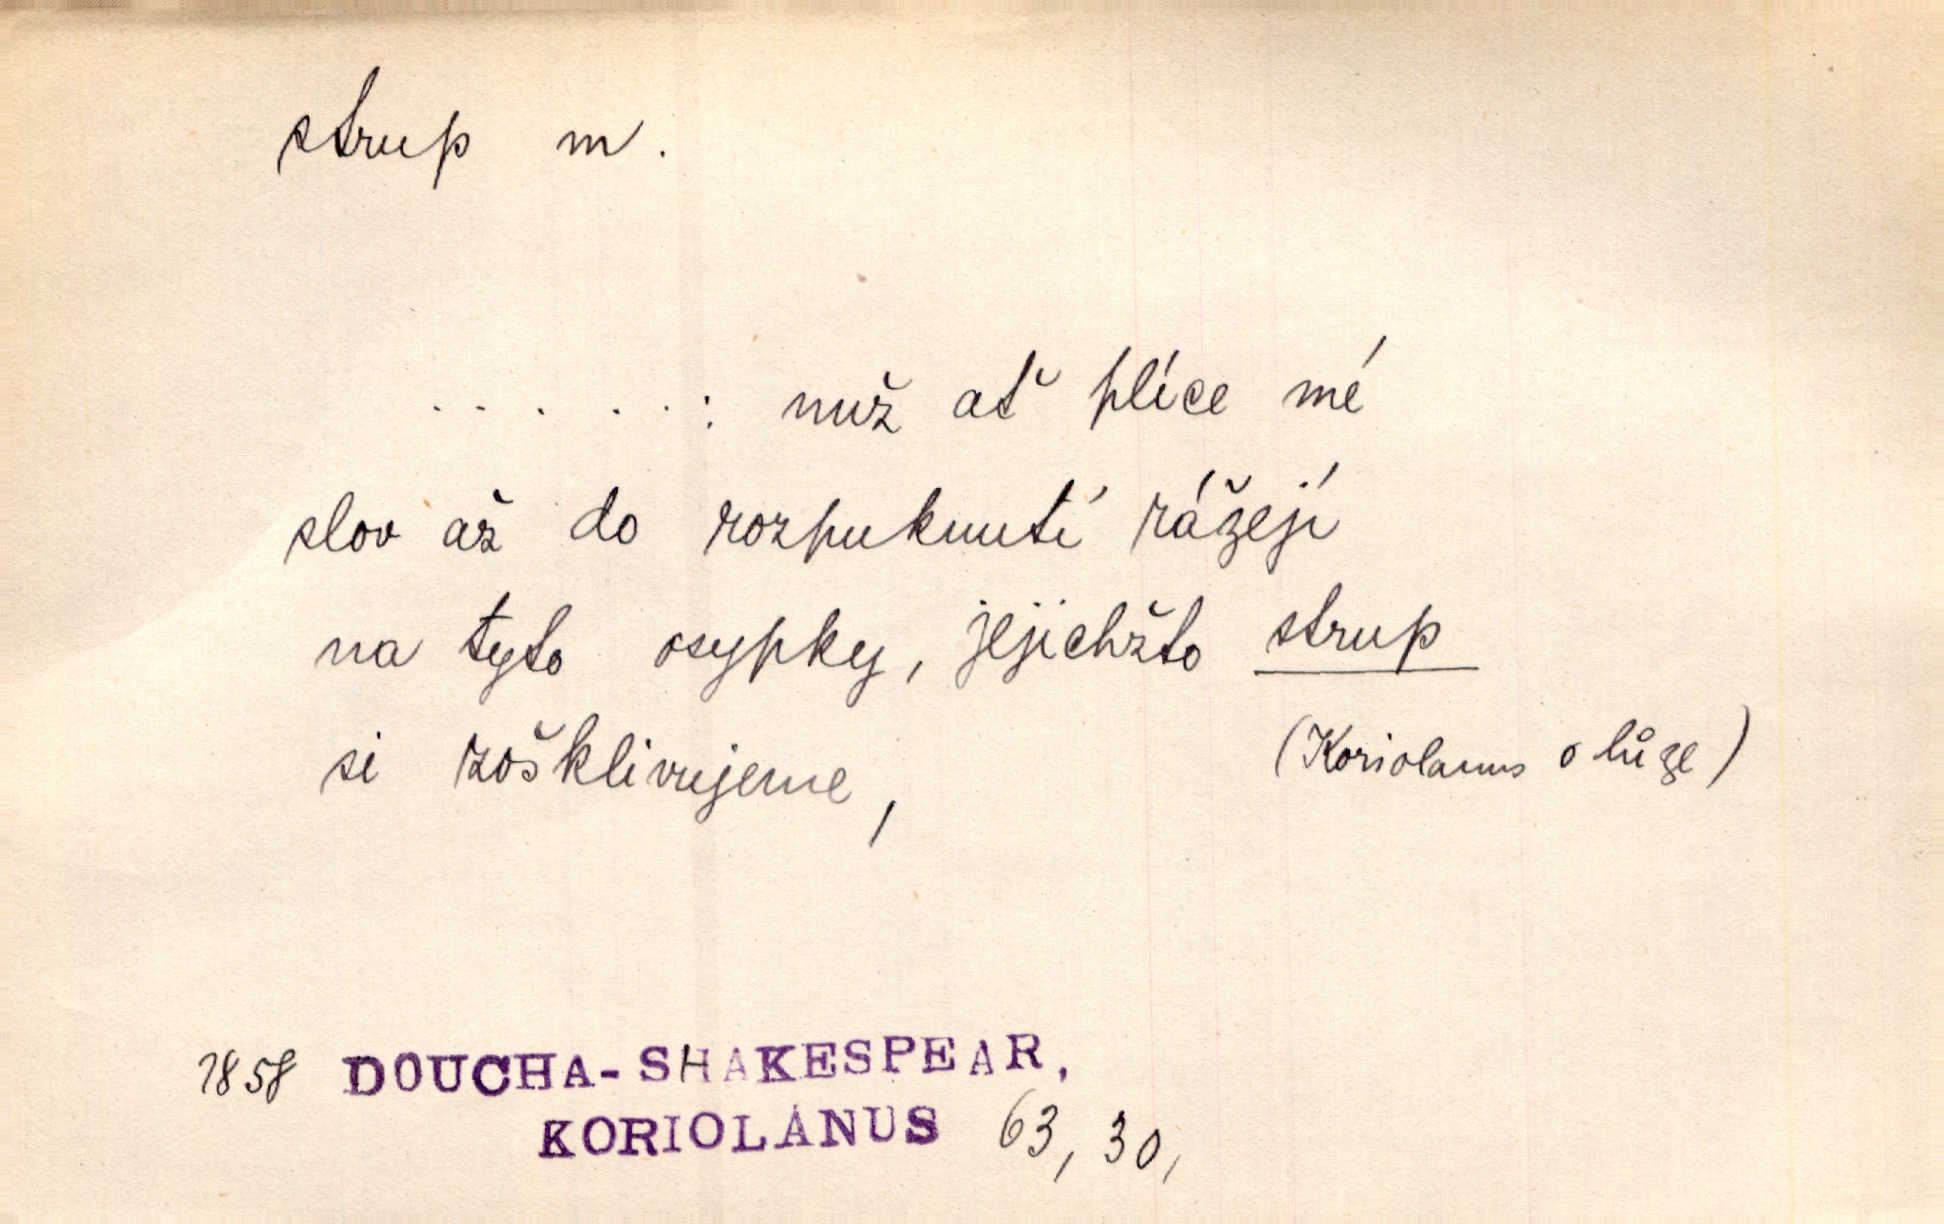 strup m.
. . . . . . : nuž ať plíce mé
slov až do rozpuknutí rážejí
na tyto osypky, jejichžto strup
si zošklivujeme,
(Koriolanus o lůze)
1858 DOUCHA-SHAKESPEAR,
KORIOLANUS 63, 30,